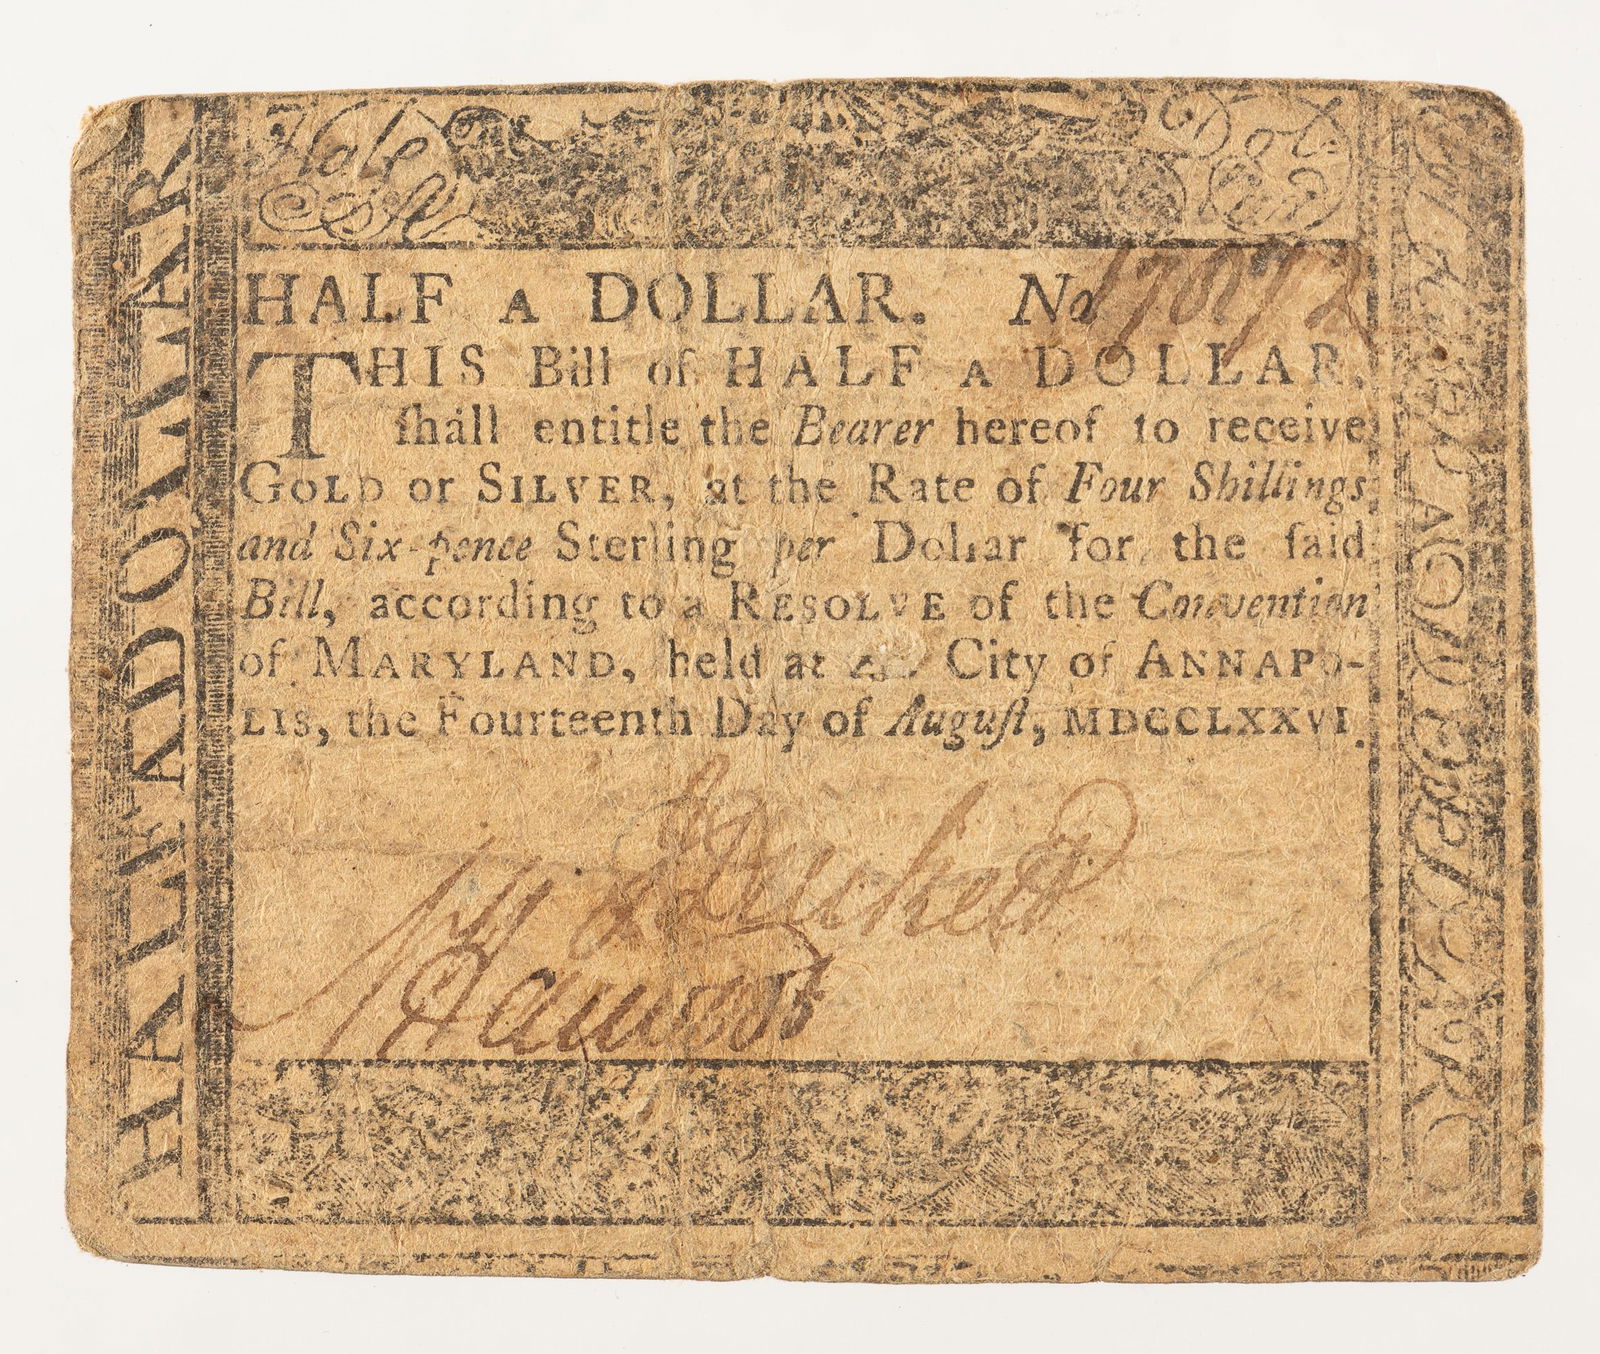 Half
Dol
HALF A DOLLAR. No 178172
THIS Bill of HALF A DOLLAR,
ſhall entitle the Bearer hereof to receive
GOLD or SILVER, at the Rate of Four Shillings
and Six-pence Sterling per Dollar for the ſaid
Bill, according to a RESOLVE of the Convention
of MARYLAND, held at City of ANNAPO-
LIS, the Fourteenth Day of Auguſt, MDCCLXXVI.
Duckett
HALF A DOLLAR